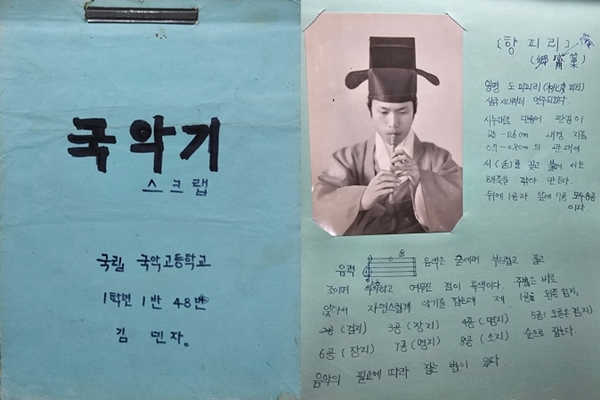 국악기
스크랩
국립 국악고등학교
1학년 1반 48번
김 민자。
[향 피리]
(鄕
일명 도피피리
삼국시대부터 연주되었다
시누대로 만들며 관길이
25-26cm 내경 지름
0.7-0.8cm의 관대에
서(舌)를 꽂고 불며 서는
대죽을 깎아 만든다.
뒤에 1공과 앞에 7공 모두 8공
이다
음력 음색은 굳세며 부드럽고 곱고
여무진 점이 특색이다. 주법은 바로
앉아서 자연스럽게 악기를 잡는데 제 1공은 왼손 엄지,
2공(검지) 3공(장지) 4공(명지) 5공(오른손 검지)
6공(장지) 7공(명지) 8공(소지) 순으로 잡는다.
음악의 필요에 따라 잡는 법이 있다.